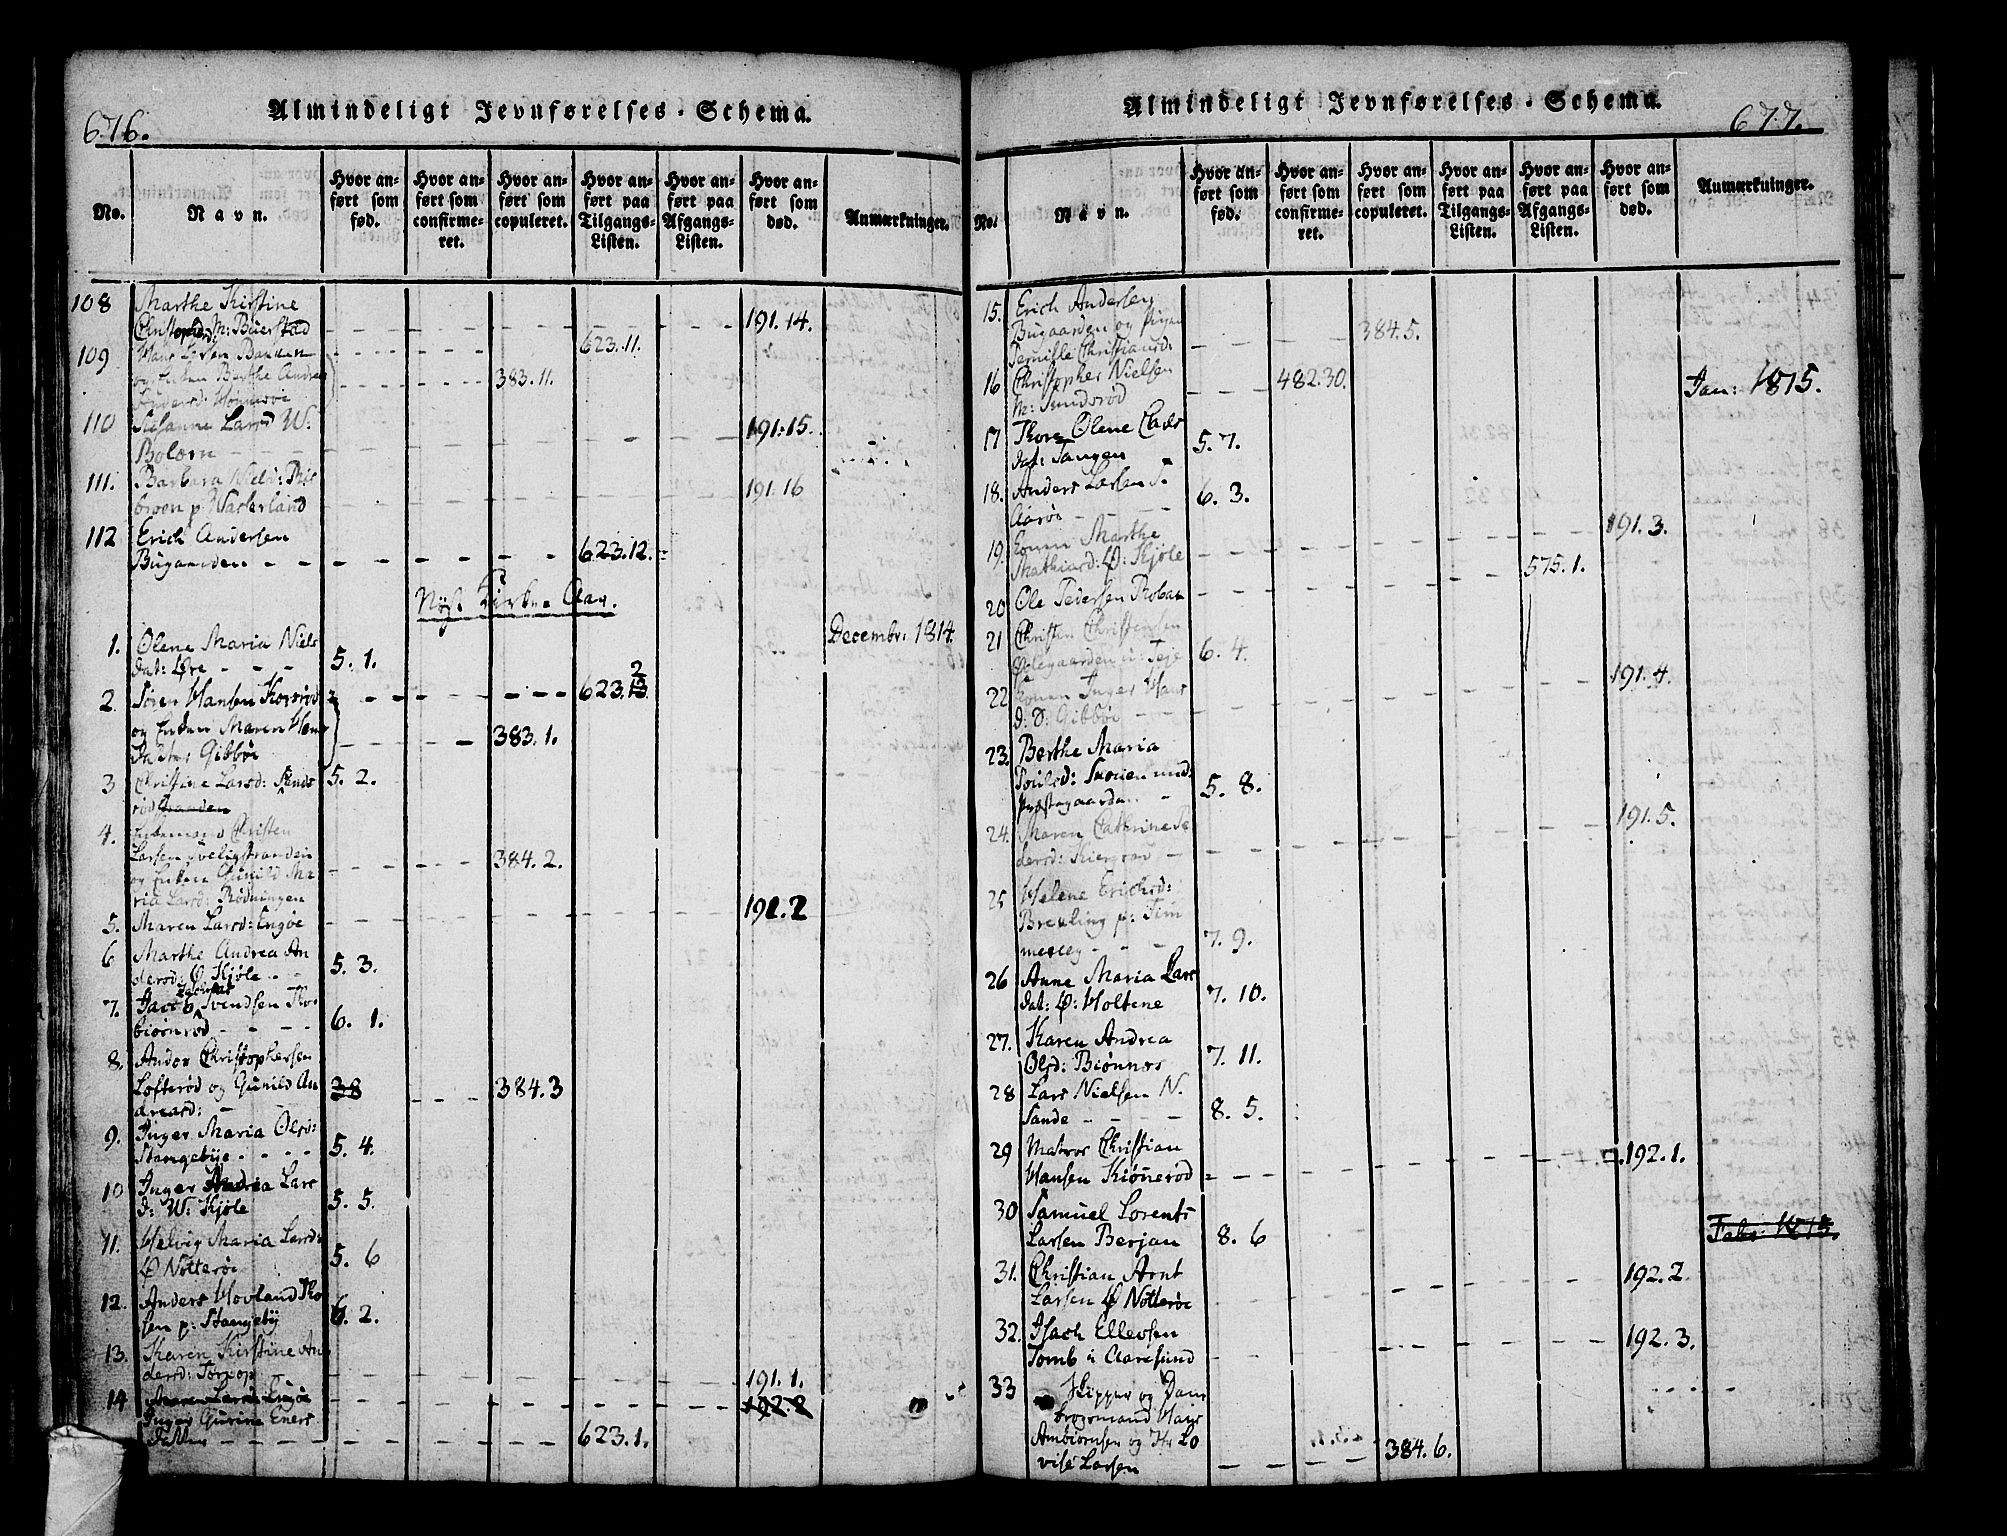 676.
Almindeligt Jevnførelses-Schema.
No.
Navn.
Hvor anført som fød.
Hvor anført som confirmeret.
Hvor anført som copuleret.
Hvor anført paa Tilgangs-Listen.
Hvor anført paa Afgangs-Listen.
Hvor anført som død.
Anmærkninger.
108 Marthe Kirstine
191.14.
109 623.11.
og Enken Berthe Andrea 383.11.
110 Susanne Larsd W:
Bolærn 191.15.
111. Barbara Niels: 191.16
112 Erich Andersen
Bugaarden 623.12.
Nyt Kirke Aar.
Decembr: 1814.
1. Olene Maria Niels
dat: Øre 5. 1.
2. Søren Hansen 623.12
og Enken Maren Hans
Datter Gibbøe 383.1.
3 Christine Larsd: Sands
rød 5. 2.
4. Christen
Larsen
og Enken Gunild Ma
ria Larsd: Rødningen 384.2.
5. Maren Larsd: Engøe 191.2
6 Marthe Andrea An
dersd: Ø Kjøle 5. 3.
7. Jacob Svendsen Tho
biønrød 6. 1.
8. Andor Christophersen
Lofterød og Gunild An
dreasd: 38 384.3
9. Inger Maria Olsd:
Stangebye 5. 4.
10 Inger Andrea Lars
d: W: Kjøle 5. 5.
11. Helvig Maria Larsd:
Ø Nøtterøe 5. 6
12. Anders Hovland Tho
sen p: Stangeby 6. 2.
13. Karen Kirstine An
dersd: Torcop 191.1.
14 Maren Larsd: Engøe 192.2
Inger Gurine Eners
Datter 623.1.
677.
Almindeligt Jevnførelses-Schema.
No.
Navn.
Hvor anført som fød.
Hvor anført som confirmeret.
Hvor anført som copuleret.
Hvor anført paa Tilgangs-Listen.
Hvor anført paa Afgangs-Listen.
Hvor anført som død.
Anmærkninger.
15. Erich Andersen
Bugaarden og Pigen
Pernille Christiansd: 384.5.
16 Christopher Nielsen
M: Sundsrød 482.30.
Jan: 1815.
17 Thore Olene Clads
dat: Tangen 5. 7.
18. Anders Larsen S.
Aarøe 6. 3.
19. Konen Marthe
Mathiasd: Ø: Kjøle 191.3.
20 Ole Pedersen 575.1.
21 Christen Christensen
Ødegaarden i Teje 6. 4.
22 Konen Inger Hans
d: S: Gibbøe 191.4.
23. Berthe Maria
Poulsd: und:
Præstegaarden 5. 8.
24. Maren Cathrine Pe
dersd: 191.5.
25 Helene Erichsd:
Breviling p: Tim
mesey 7. 9.
26 Anne Maria Lars
dat: Ø: Holtene 7. 10.
27. Karen Andrea
Olsd: Biønnes 7. 11.
28 Lars Nielsen N.
Sande 8. 5.
29 Matros Christian
Hansen Kiønerød 192.1.
30 Samuel Lorents
Larsen Berjan 8. 6
Febr: 1815.
31. Christian Arnt
Larsen Ø Nøtterøe 192.2.
32. Isach Ellevsen
Tomb i Aaresund 192.3.
33 Skipper og Dan
brogsmand Hans
Ambiørnsen og Fr: Lo
vise Larsen 384.6.